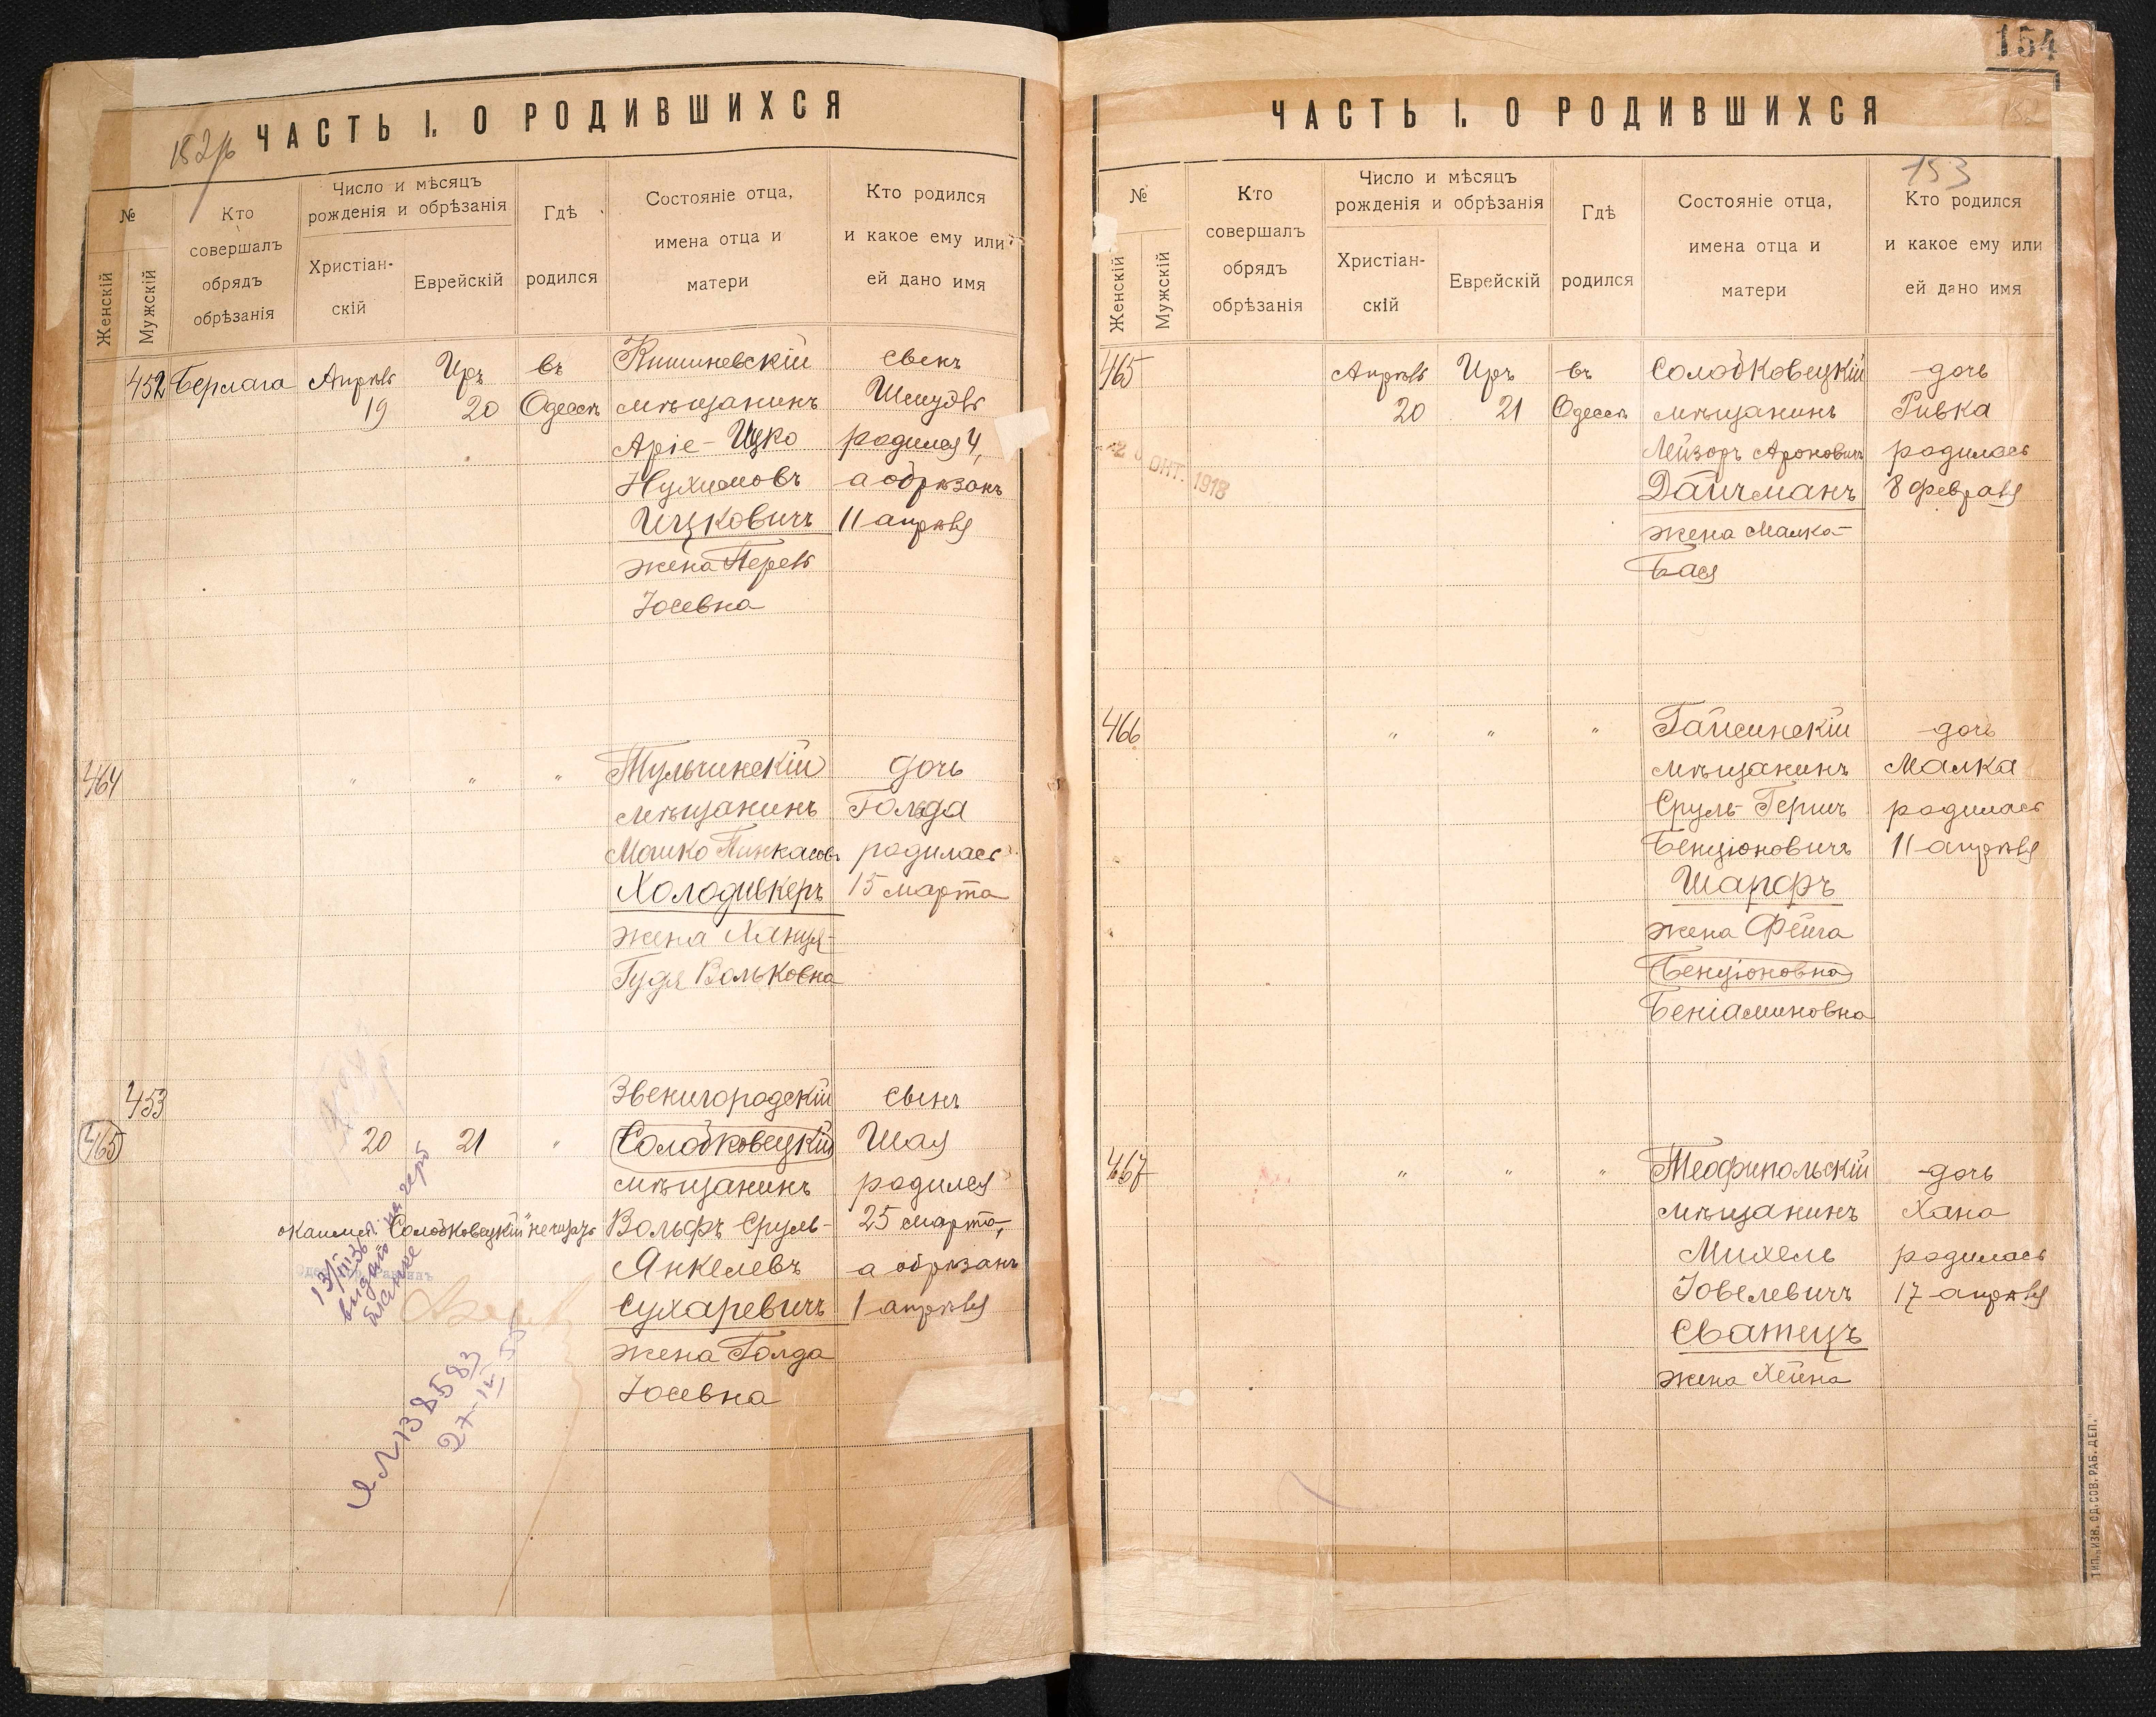 182
ЧАСТЬ I. О РОДИВШИХСЯ
№
Женскій
Мужскій
Кто
совершалъ
обрядъ
обрѣзанія
Число и мѣсяцъ
рожденія и обрѣзанія
Христіан-
скій
Еврейскій
Гдѣ
родился
Состояніе отца,
имена отца и
матери
Кто родился
и какое ему или
ей дано имя
452 Берлага Апрѣль Иръ въ Кишиневскій сынъ
19 20 Одессѣ мѣщанинъ Шмудь
Аріе-Ицко родился 4,
Нухимовъ а обрѣзанъ
Ицковичъ 11 апрѣля
жена Перель
Іосевна
464 " " " Тульчинскій дочь
мѣщанинъ Гольда
Мошко Пинкасовъ родилась
Холодивкеръ 15 марта
жена
Гудя Вольковна
453 Звенигородскій сынъ
465 20 21 " Солобковецкій Шая
мѣщанинъ родился
окаимл. "Солобковецкій" не чит Вольфъ Сруль- 25 марта,
Янкелевъ а обрѣзанъ
Сухаревичъ 1 апрѣля
жена Голда
Іосевна
13/III 36 г.
выдано на герб
бланке
И Л 138583
154
ЧАСТЬ I. О РОДИВШИХСЯ
152
153
№
Женскій
Мужскій
Кто
совершалъ
обрядъ
обрѣзанія
Число и мѣсяцъ
рожденія и обрѣзанія
Христіан-
скій
Еврейскій
Гдѣ
родился
Состояніе отца,
имена отца и
матери
Кто родился
и какое ему или
ей дано имя
465 Апрѣль Иръ въ Солобковецкій дочь
20 21 Одессѣ мѣщанинъ Ривка
Лейзоръ Ароновичъ родилась
Дайчманъ 8 февраля
жена Малка-
Бася
ОКТ. 1918
466 " " " Гайсинскій дочь
мѣщанинъ Малка
Сруль-Гершъ родилась
Бенціоновичъ 11 апрѣля
Шарфъ
жена Фейга
Бенціоновна
Беніаминовна
467 " " " Теофипольскій дочь
мѣщанинъ Хана
Михель родилась
Іовелевичъ 17 апрѣля
Сватецъ
жена Хейна
ТИП. „ИЗВ. ОД. СОВ. РАБ. ДЕП."